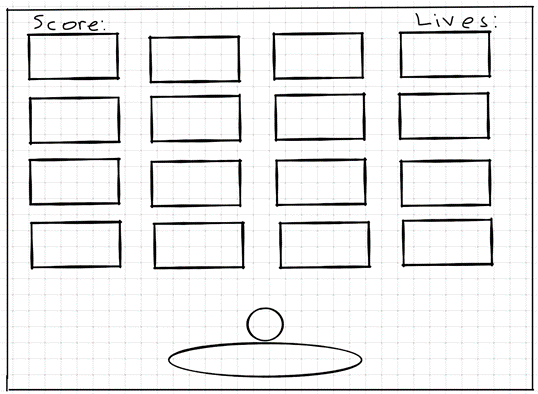 Score:
Lives: